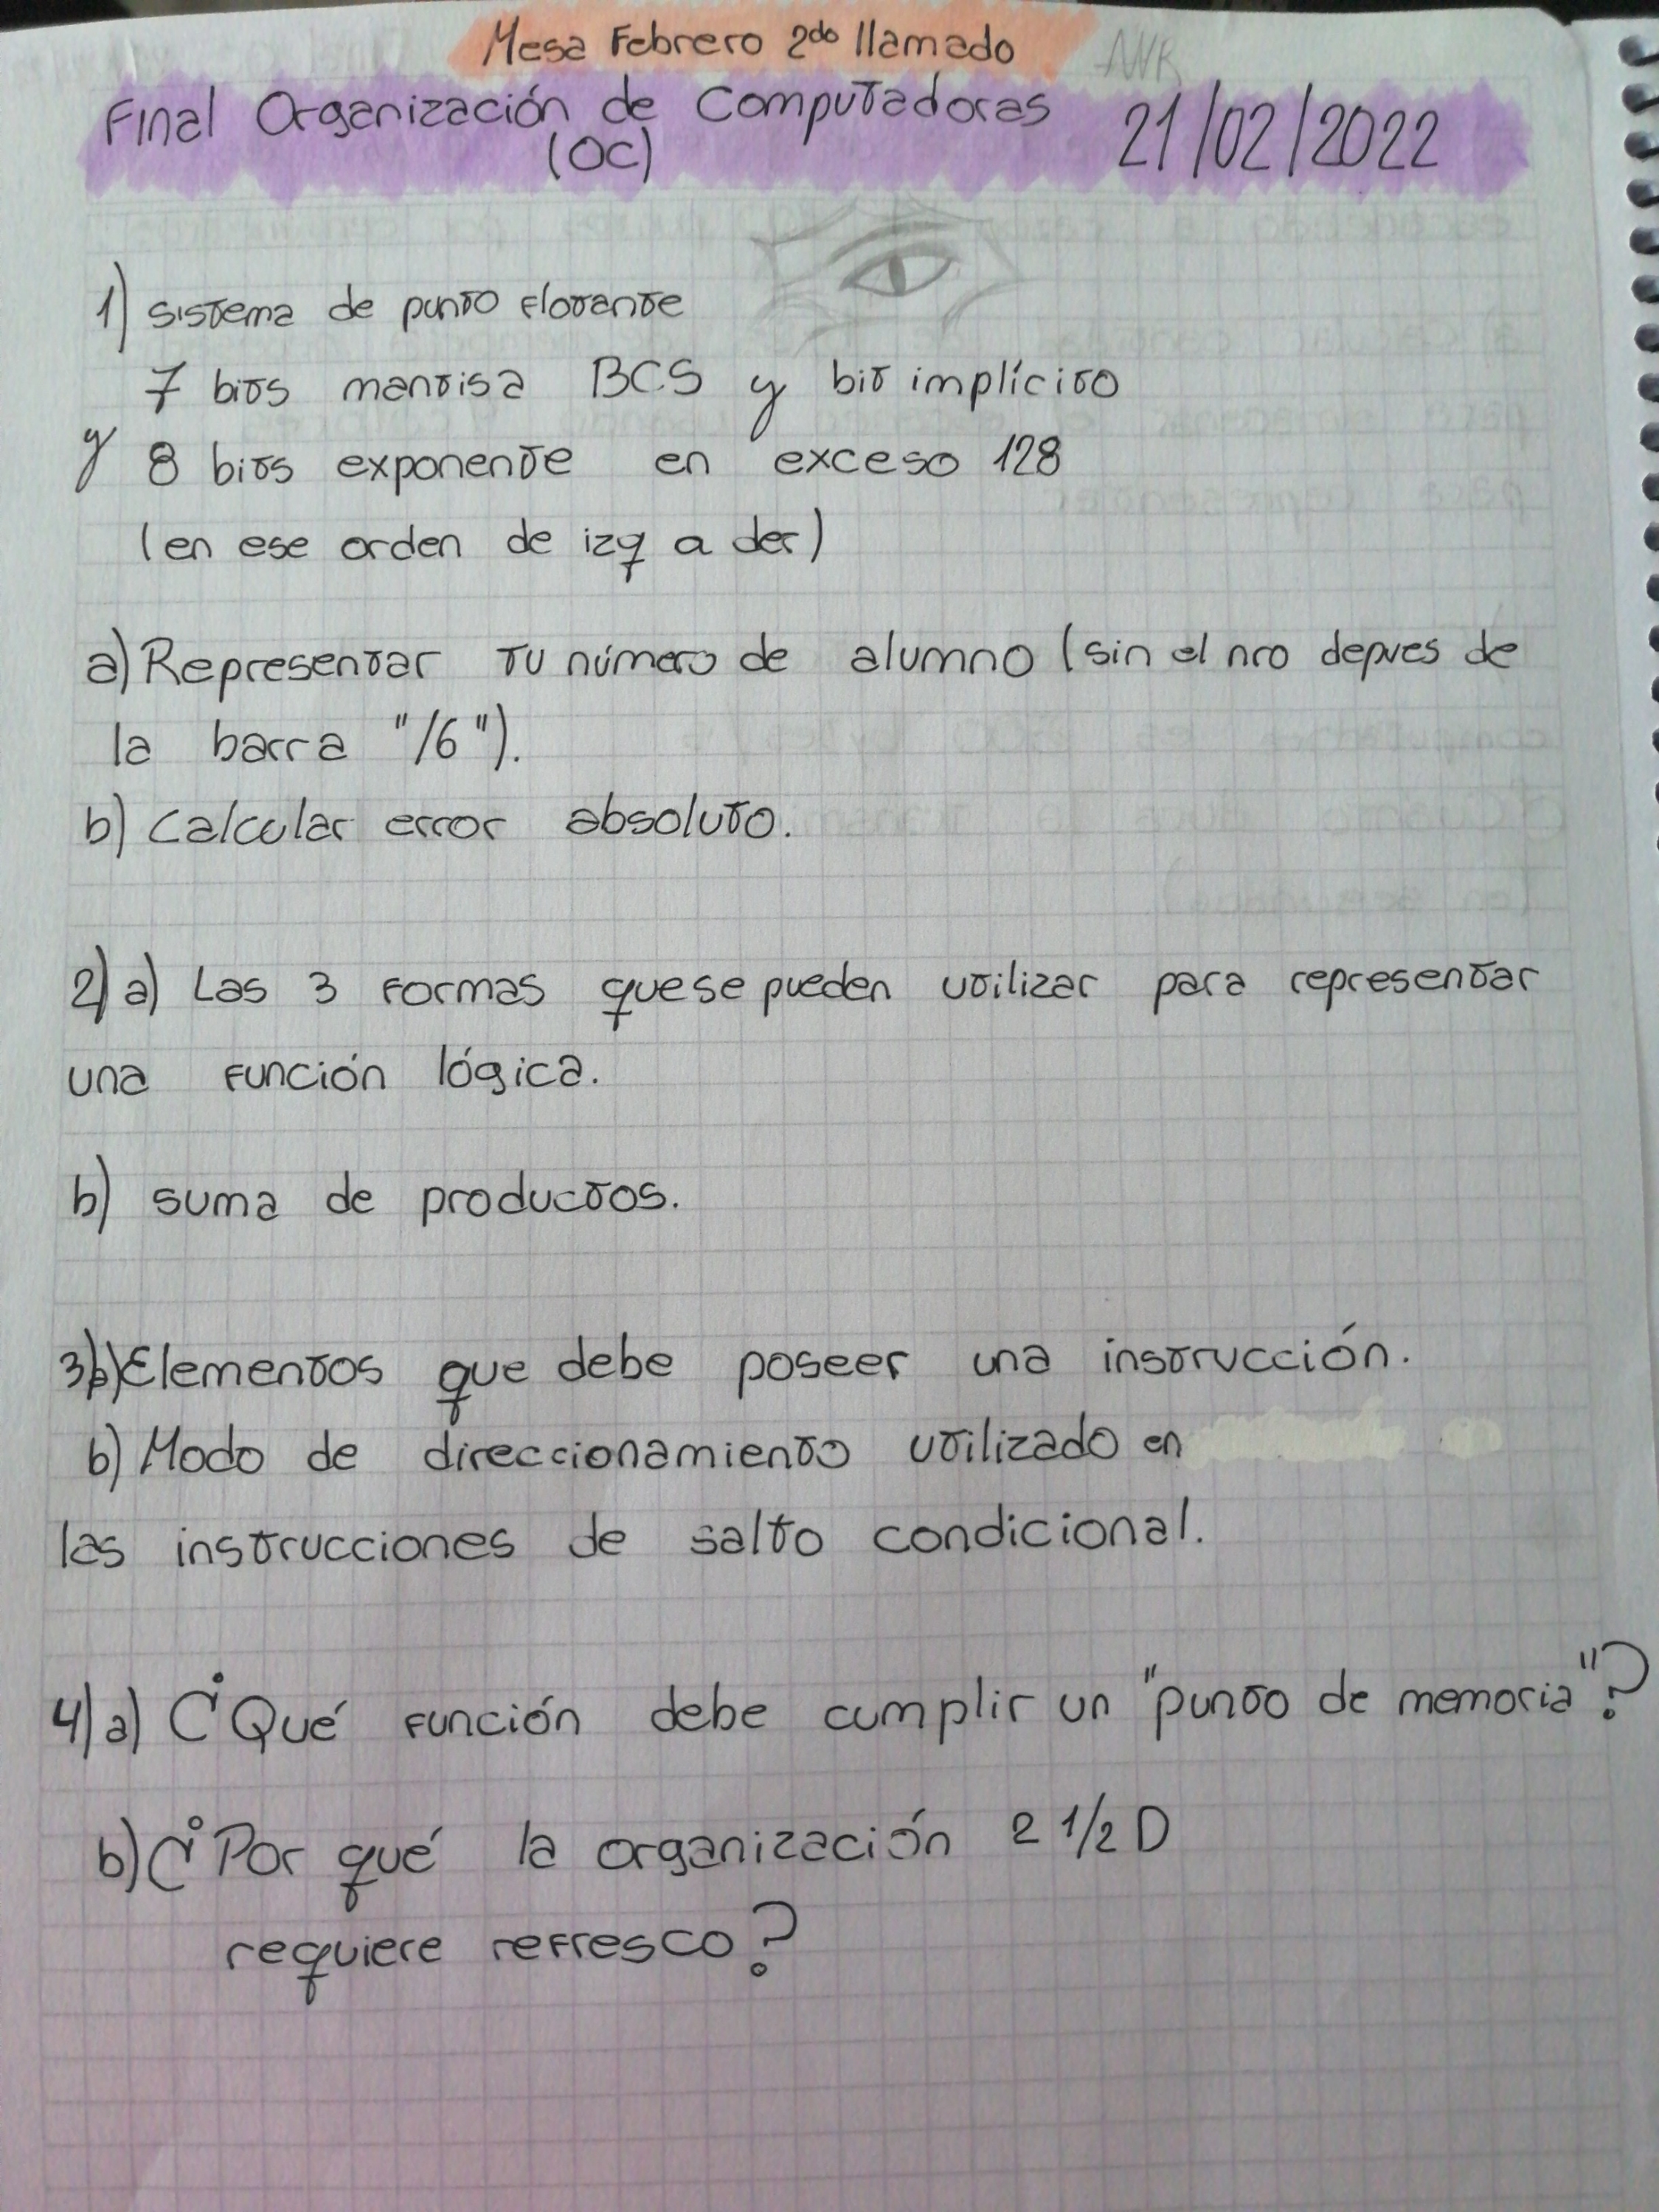 Mesa Febrero 2do llamado
NVR
Final Organización de Computadoras 21/02/2022
(OC)
1) sistema de punto flotante
7 bits mantisa BCS y bit implícito
y 8 bits exponente en exceso 128
(en ese orden de izq a der)
a) Representar tu número de alumno (sin el nro depues de
la barra "/6").
b) Calcular error absoluto.
2) a) Las 3 formas que se pueden utilizar para representar
una función lógica.
b) suma de productos.
3) b) Elementos que debe poseer una instrucción.
b) Modo de direccionamiento utilizado en
las instrucciones de salto condicional.
4) a) ¿Qué función debe cumplir un "punto de memoria"?
b) ¿Por qué la organización 2 1/2 D
requiere refresco?